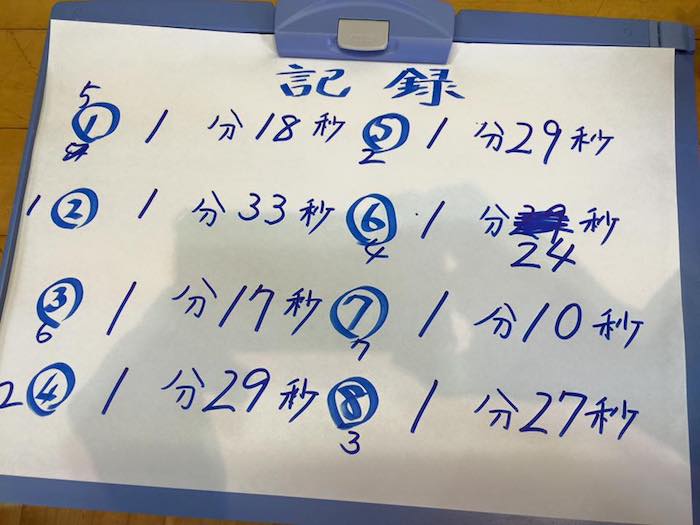 記録
5
① 1分18秒 ⑤ 1分29秒
2
1 ② 1分33秒 ⑥ 1分秒
4 24
③ 1分17秒 ⑦ 1分10秒
6 7
2 ④ 1分29秒 ⑧ 1分27秒
3